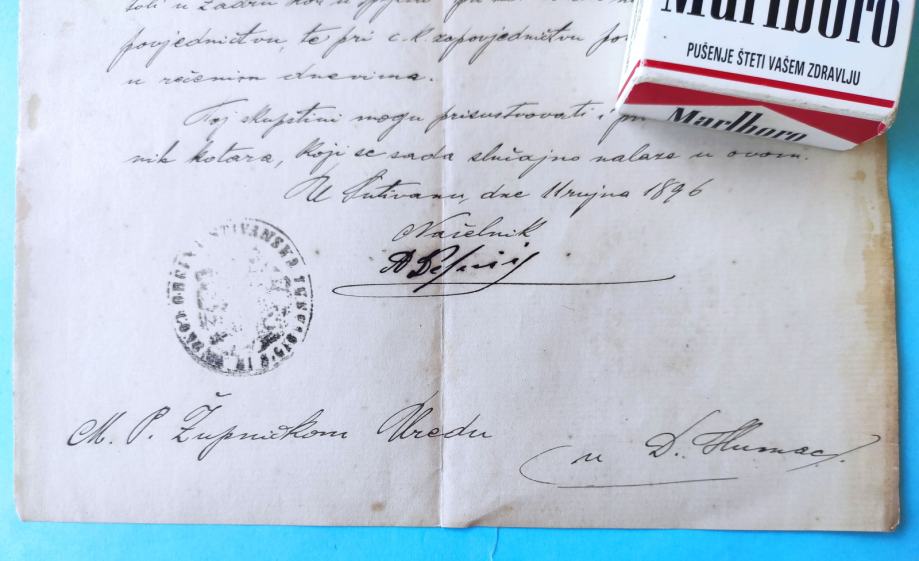 povjedničtvu, te pri c. k. zapovjedničtvu
u rečenim dnevima.
Toj skupštini mogu prisustvovati i
nik kotara, koji se sada slučajno nalaze u ovom.
U Sutivanu, dne 11 rujna 1896
Načelnik
M. P. Župničkom Uredu
u D. Humac.
Marlboro
PUŠENJE ŠTETI VAŠEM ZDRAVLJU
Marlboro